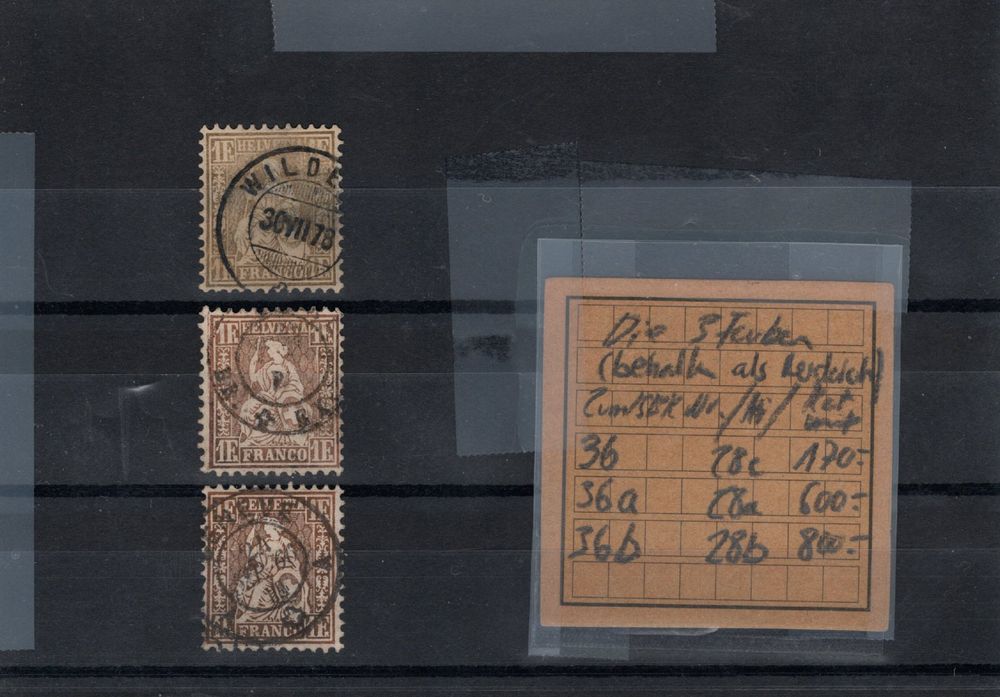 1F HELVETIA
WILDE
30 VII 78
FRANCO
1F HELVETIA 1F
1F FRANCO 1F
HELVETIA
1F FRANCO 1F
Die 3 Farben
(behalten als Vergleich)
Nr. / Mi / Kat
36 28c 170.-
36a 28a 600.-
36b 28b 840.-